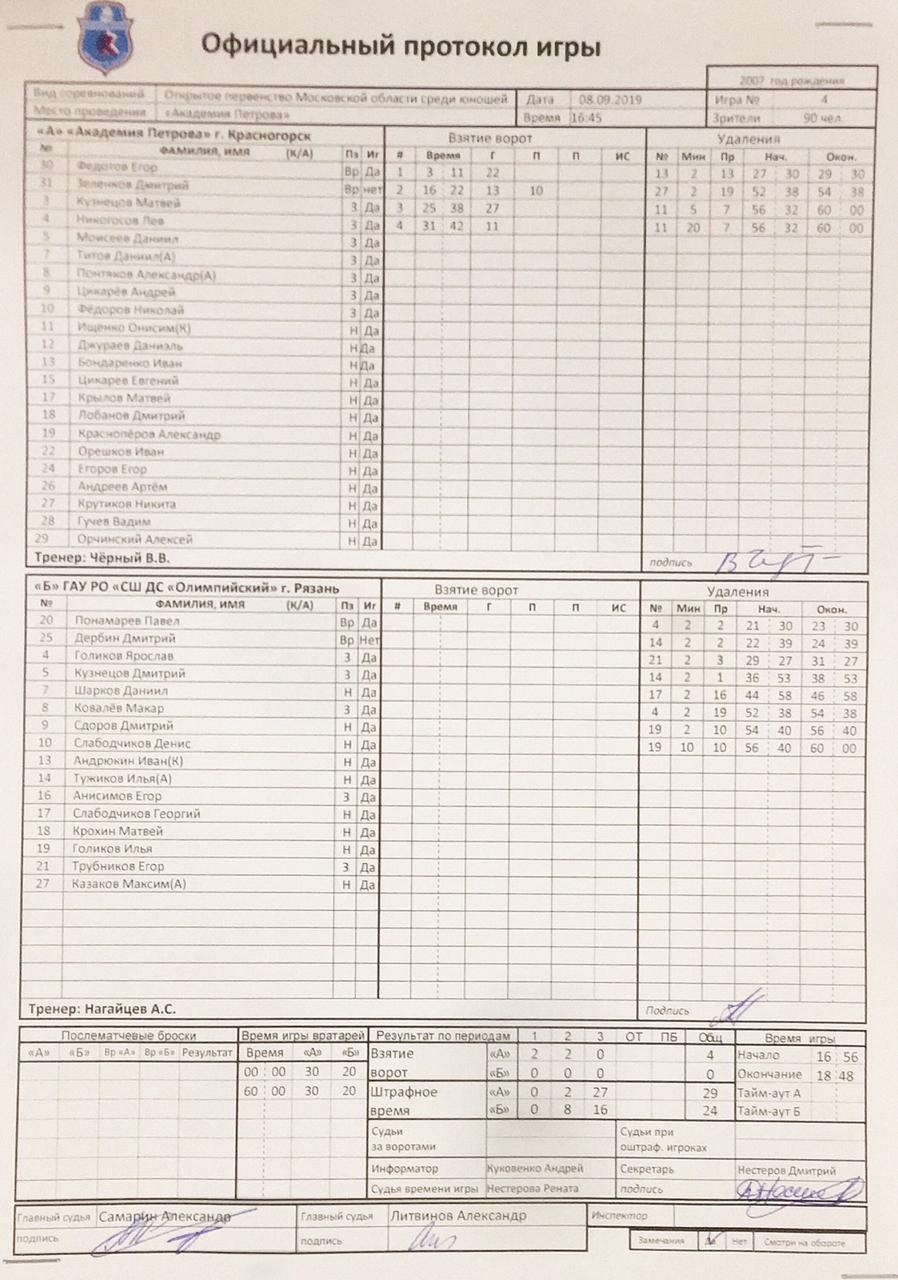 Официальный протокол игры
2007 год рождения
Вид соревнований Открытое первенство Московской области среди юношей Дата 08.09.2019 Игра № 4
Место проведения «Академия Петрова» Время 16:45 Зрители 90 чел.
«А» «Академия Петрова» г. Красногорск Взятие ворот Удаления
№ ФАМИЛИЯ, ИМЯ (К/А) Пз Иг # Время Г П П ИС № Мин Пр Нач. Окон.
30 Федотов Егор Вр Да 1 3 11 22 13 2 13 27 30 29 30
31 Зеленков Дмитрий Вр нет 2 16 22 13 10 27 2 19 52 38 54 38
3 Кузнецов Матвей З Да 3 25 38 27 11 5 7 56 32 60 00
4 Никогосов Лев З Да 4 31 42 11 11 20 7 56 32 60 00
5 Моисеев Даниил З Да
7 Титов Даниил(А) З Да
8 Понтяков Александр(А) З Да
9 Цикарёв Андрей З Да
10 Фёдоров Николай З Да
11 Ищенко Онисим(К) Н Да
12 Джураев Даниэль Н Да
13 Бондаренко Иван Н Да
15 Цикарев Евгений Н Да
17 Крылов Матвей Н Да
18 Лобанов Дмитрий Н Да
19 Краснопёров Александр Н Да
22 Орешков Иван Н Да
24 Егоров Егор Н Да
26 Андреев Артём Н Да
27 Крутиков Никита Н Да
28 Гучев Вадим Н Да
29 Орчинский Алексей Н Да
Тренер: Чёрный В.В. подпись
«Б» ГАУ РО «СШ ДС «Олимпийский» г. Рязань Взятие ворот Удаления
№ ФАМИЛИЯ, ИМЯ (К/А) Пз Иг # Время Г П П ИС № Мин Пр Нач. Окон.
20 Понамарев Павел Вр Да 4 2 2 21 30 23 30
25 Дербин Дмитрий Вр Нет 14 2 2 22 39 24 39
4 Голиков Ярослав З Да 21 2 3 29 27 31 27
5 Кузнецов Дмитрий З Да 14 2 1 36 53 38 53
7 Шарков Даниил Н Да 17 2 16 44 58 46 58
8 Ковалёв Макар З Да 4 2 19 52 38 54 38
9 Сдоров Дмитрий Н Да 19 2 10 54 40 56 40
10 Слабодчиков Денис Н Да 19 10 10 56 40 60 00
13 Андрюкин Иван(К) Н Да
14 Тужиков Илья(А) Н Да
16 Анисимов Егор З Да
17 Слабодчиков Георгий Н Да
18 Крохин Матвей Н Да
19 Голиков Илья Н Да
21 Трубников Егор З Да
27 Казаков Максим(А) Н Да
Тренер: Нагайцев А.С. Подпись
Послематчевые броски Время игры вратарей Результат по периодам 1 2 3 ОТ ПБ Общ Время игры
«А» «Б» Вр «А» Вр «Б» Результат Время «А» «Б» Взятие «А» 2 2 0 4 Начало 16 56
00 : 00 30 20 ворот «Б» 0 0 0 0 Окончание 18 48
60 : 00 30 20 Штрафное «А» 0 2 27 29 Тайм-аут А
время «Б» 0 8 16 24 Тайм-аут Б
Судьи за воротами Судьи при оштраф. игроках
Информатор Куковенко Андрей Секретарь Нестеров Дмитрий
Судья времени игры Нестерова Рената подпись
Главный судья Самарин Александр Главный судья Литвинов Александр Инспектор
подпись подпись Замечания Да Нет Смотри на обороте